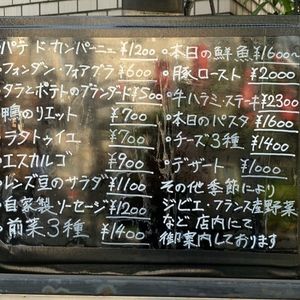 ・パテ ド カンパーニュ ¥1200
・フォンダン・フォアグラ ¥600
・タラとポテトのブランダード ¥500
・鴨のリエット ¥700
・ラタトゥイユ ¥700
・エスカルゴ ¥900
・レンズ豆のサラダ ¥1100
・自家製ソーセージ ¥1200
・前菜3種 ¥1400
・本日の鮮魚 ¥1600〜
・豚ロースト ¥2000
・牛ハラミ・ステーキ ¥2300
・本日のパスタ ¥1600
・チーズ3種 ¥1400
・デザート ¥1000
その他 季節により
ジビエ・フランス産野菜
など 店内にて
御案内しております